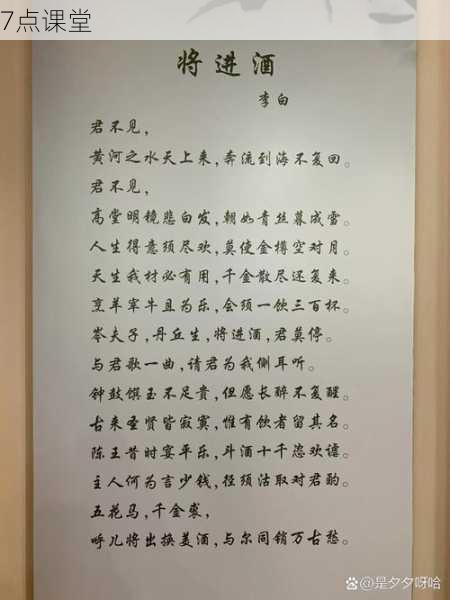 7点课堂
将进酒
李白
君不见，
黄河之水天上来，奔流到海不复回。
君不见，
高堂明镜悲白发，朝如青丝暮成雪。
人生得意须尽欢，莫使金樽空对月。
天生我材必有用，千金散尽还复来。
烹羊宰牛且为乐，会须一饮三百杯。
岑夫子，丹丘生，将进酒，君莫停。
与君歌一曲，请君为我侧耳听。
钟鼓馔玉不足贵，但愿长醉不复醒。
古来圣贤皆寂寞，惟有饮者留其名。
陈王昔时宴平乐，斗酒十千恣欢谑。
主人何为言少钱，径须沽取对君酌。
五花马，千金裘，
呼儿将出换美酒，与尔同销万古愁。
@是夕夕呀哈